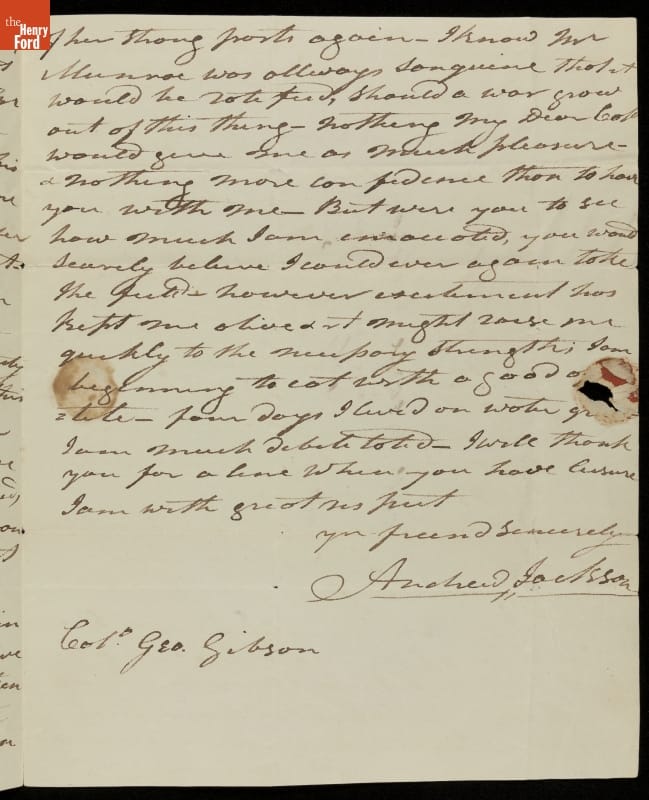 the
Henry
Ford
of her strong posts again – I know Mr
Munroe was allways sanguine that it
would be ratefied, should a war grow
out of this thing – nothing my Dear Col.
would give me as much pleasure –
& nothing more confidence than to have
you with me – But were you to see
how much I am emaceated, you would
scarely believe I could ever again take
the field – however excitement has
kept me alive & it might raise me
quickly to the necessary strength; I am
beginning to eat with a good
= tite – four days I lived on water
I am much debilitated – I will thank
you for a line when you have leisure
I am with great respect
yr freend sincerely
Andrew Jackson
Colo. Geo. Gibson